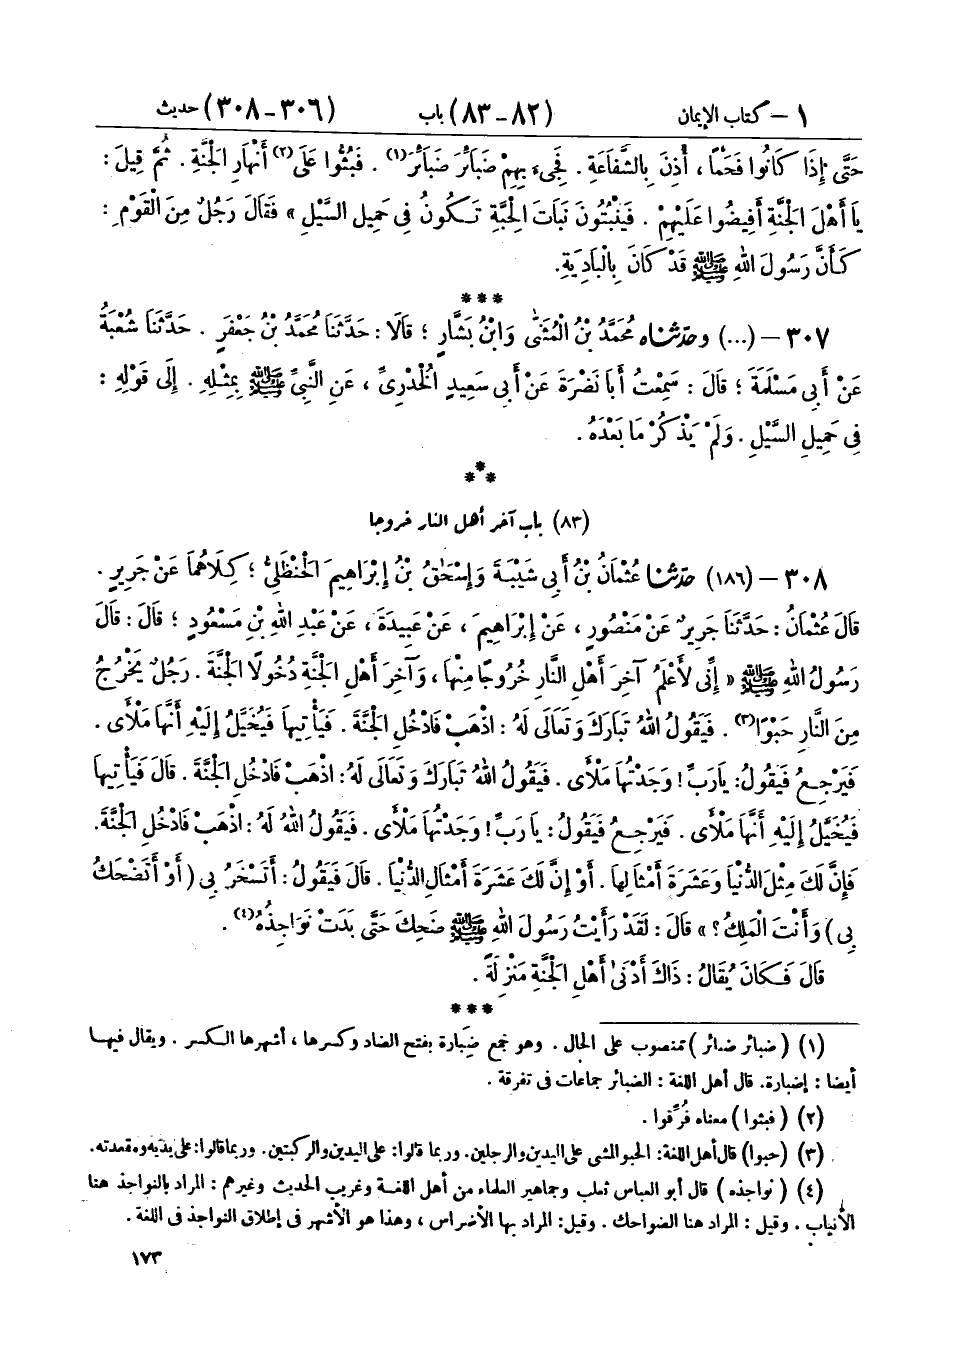 ١ – كتاب الإيمان (٨٢-٨٣) باب (٣٠٦-٣٠٨) حديث
حَتَّى إِذَا كَانُوا فَحْمًا ، أُذِنَ بِالشَّفَاعَةِ . فَجِىءَ بِهِمْ ضَبَائِرَ ضَبَائِرَ(١) . فَبُثُّوا عَلَى(٢) أَنْهَارِ الْجَنَّةِ . ثُمَّ قِيلَ :
يَا أَهْلَ الْجَنَّةِ أَفِيضُوا عَلَيْهِمْ . فَيَنْبُتُونَ نَبَاتَ الْحِبَّةِ تَكُونُ فِى حَمِيلِ السَّيْلِ » فَقَالَ رَجُلٌ مِنَ الْقَوْمِ :
كَأَنَّ رَسُولَ اللهِ ﷺ قَدْ كَانَ بِالْبَادِيَةِ.
***
٣٠٧ – (...) وحَدَّثَنَاه مُحَمَّدُ بْنُ الْمُثَنَّى وَابْنُ بَشَّارٍ ؛ قَالَا : حَدَّثَنَا مُحَمَّدُ بْنُ جَعْفَرٍ . حَدَّثَنَا شُعْبَةُ
عَنْ أَبِى مَسْلَمَةَ ؛ قَالَ : سَمِعْتُ أَبَا نَضْرَةَ عَنْ أَبِى سَعِيدٍ الْخُدْرِىِّ ، عَنِ النَّبِىِّ ﷺ بِمِثْلِهِ . إِلَى قَوْلِهِ :
فِى حَمِيلِ السَّيْلِ . وَلَمْ يَذْكُرْ مَا بَعْدَهُ .
***
(٨٣) باب آخر أهل النار خروجا
٣٠٨ – (١٨٦) حَدَّثَنَا عُثْمَانُ بْنُ أَبِى شَيْبَةَ وَإِسْحَاقُ بْنُ إِبْرَاهِيمَ الْحَنْظَلِىُّ ؛ كِلَاهُمَا عَنْ جَرِيرٍ .
قَالَ عُثْمَانُ : حَدَّثَنَا جَرِيرٌ عَنْ مَنْصُورٍ ، عَنْ إِبْرَاهِيمَ ، عَنْ عَبِيدَةَ ، عَنْ عَبْدِ اللهِ بْنِ مَسْعُودٍ ؛ قَالَ : قَالَ
رَسُولُ اللهِ ﷺ « إِنِّى لَأَعْلَمُ آخِرَ أَهْلِ النَّارِ خُرُوجًا مِنْهَا ، وَآخِرَ أَهْلِ الْجَنَّةِ دُخُولًا الْجَنَّةَ . رَجُلٌ يَخْرُجُ
مِنَ النَّارِ حَبْوًا(٣) . فَيَقُولُ اللهُ تَبَارَكَ وَتَعَالَى لَهُ : اذْهَبْ فَادْخُلِ الْجَنَّةَ . فَيَأْتِيهَا فَيُخَيَّلُ إِلَيْهِ أَنَّهَا مَلْأَى .
فَيَرْجِعُ فَيَقُولُ: يَا رَبِّ ! وَجَدْتُهَا مَلْأَى . فَيَقُولُ اللهُ تَبَارَكَ وَتَعَالَى لَهُ: اذْهَبْ فَادْخُلِ الْجَنَّةَ . قَالَ فَيَأْتِيهَا
فَيُخَيَّلُ إِلَيْهِ أَنَّهَا مَلْأَى . فَيَرْجِعُ فَيَقُولُ : يَا رَبِّ ! وَجَدْتُهَا مَلْأَى . فَيَقُولُ اللهُ لَهُ : اذْهَبْ فَادْخُلِ الْجَنَّةَ.
فَإِنَّ لَكَ مِثْلَ الدُّنْيَا وَعَشَرَةَ أَمْثَالِهَا . أَوْ إِنَّ لَكَ عَشَرَةَ أَمْثَالِ الدُّنْيَا . قَالَ فَيَقُولُ : أَتَسْخَرُ بِى ( أَوْ أَتَضْحَكُ
بِى ) وَأَنْتَ الْمَلِكُ ؟ » قَالَ : لَقَدْ رَأَيْتُ رَسُولَ اللهِ ﷺ ضَحِكَ حَتَّى بَدَتْ نَوَاجِذُهُ(٤) .
قَالَ فَكَانَ يُقَالُ : ذَاكَ أَدْنَى أَهْلِ الْجَنَّةِ مَنْزِلَةً .
***
(١) ( ضبائر ضبائر ) منصوب على الحال . وهو جمع ضِبارة بفتح الضاد وكسرها ، أشهرها الكسر . ويقال فيها
أيضا : إضبارة. قال أهل اللغة : الضبائر جماعات فى تفرقة .
(٢) ( فبثوا ) معناه فُرِّقوا .
(٣) (حبوا) قال أهل اللغة: الحبو المشى على اليدين والرجلين. وربما قالوا: على اليدين والركبتين. وربما قالوا: على يديه ومقعدته.
(٤) ( نواجذه ) قال أبو العباس ثعلب وجماهير العلماء من أهل اللغة وغريب الحديث وغيرهم : المراد بالنواجذ هنا
الأنياب . وقيل : المراد هنا الضواحك . وقيل: المراد بها الأضراس ، وهذا هو الأشهر فى إطلاق النواجذ فى اللغة .
١٧٣